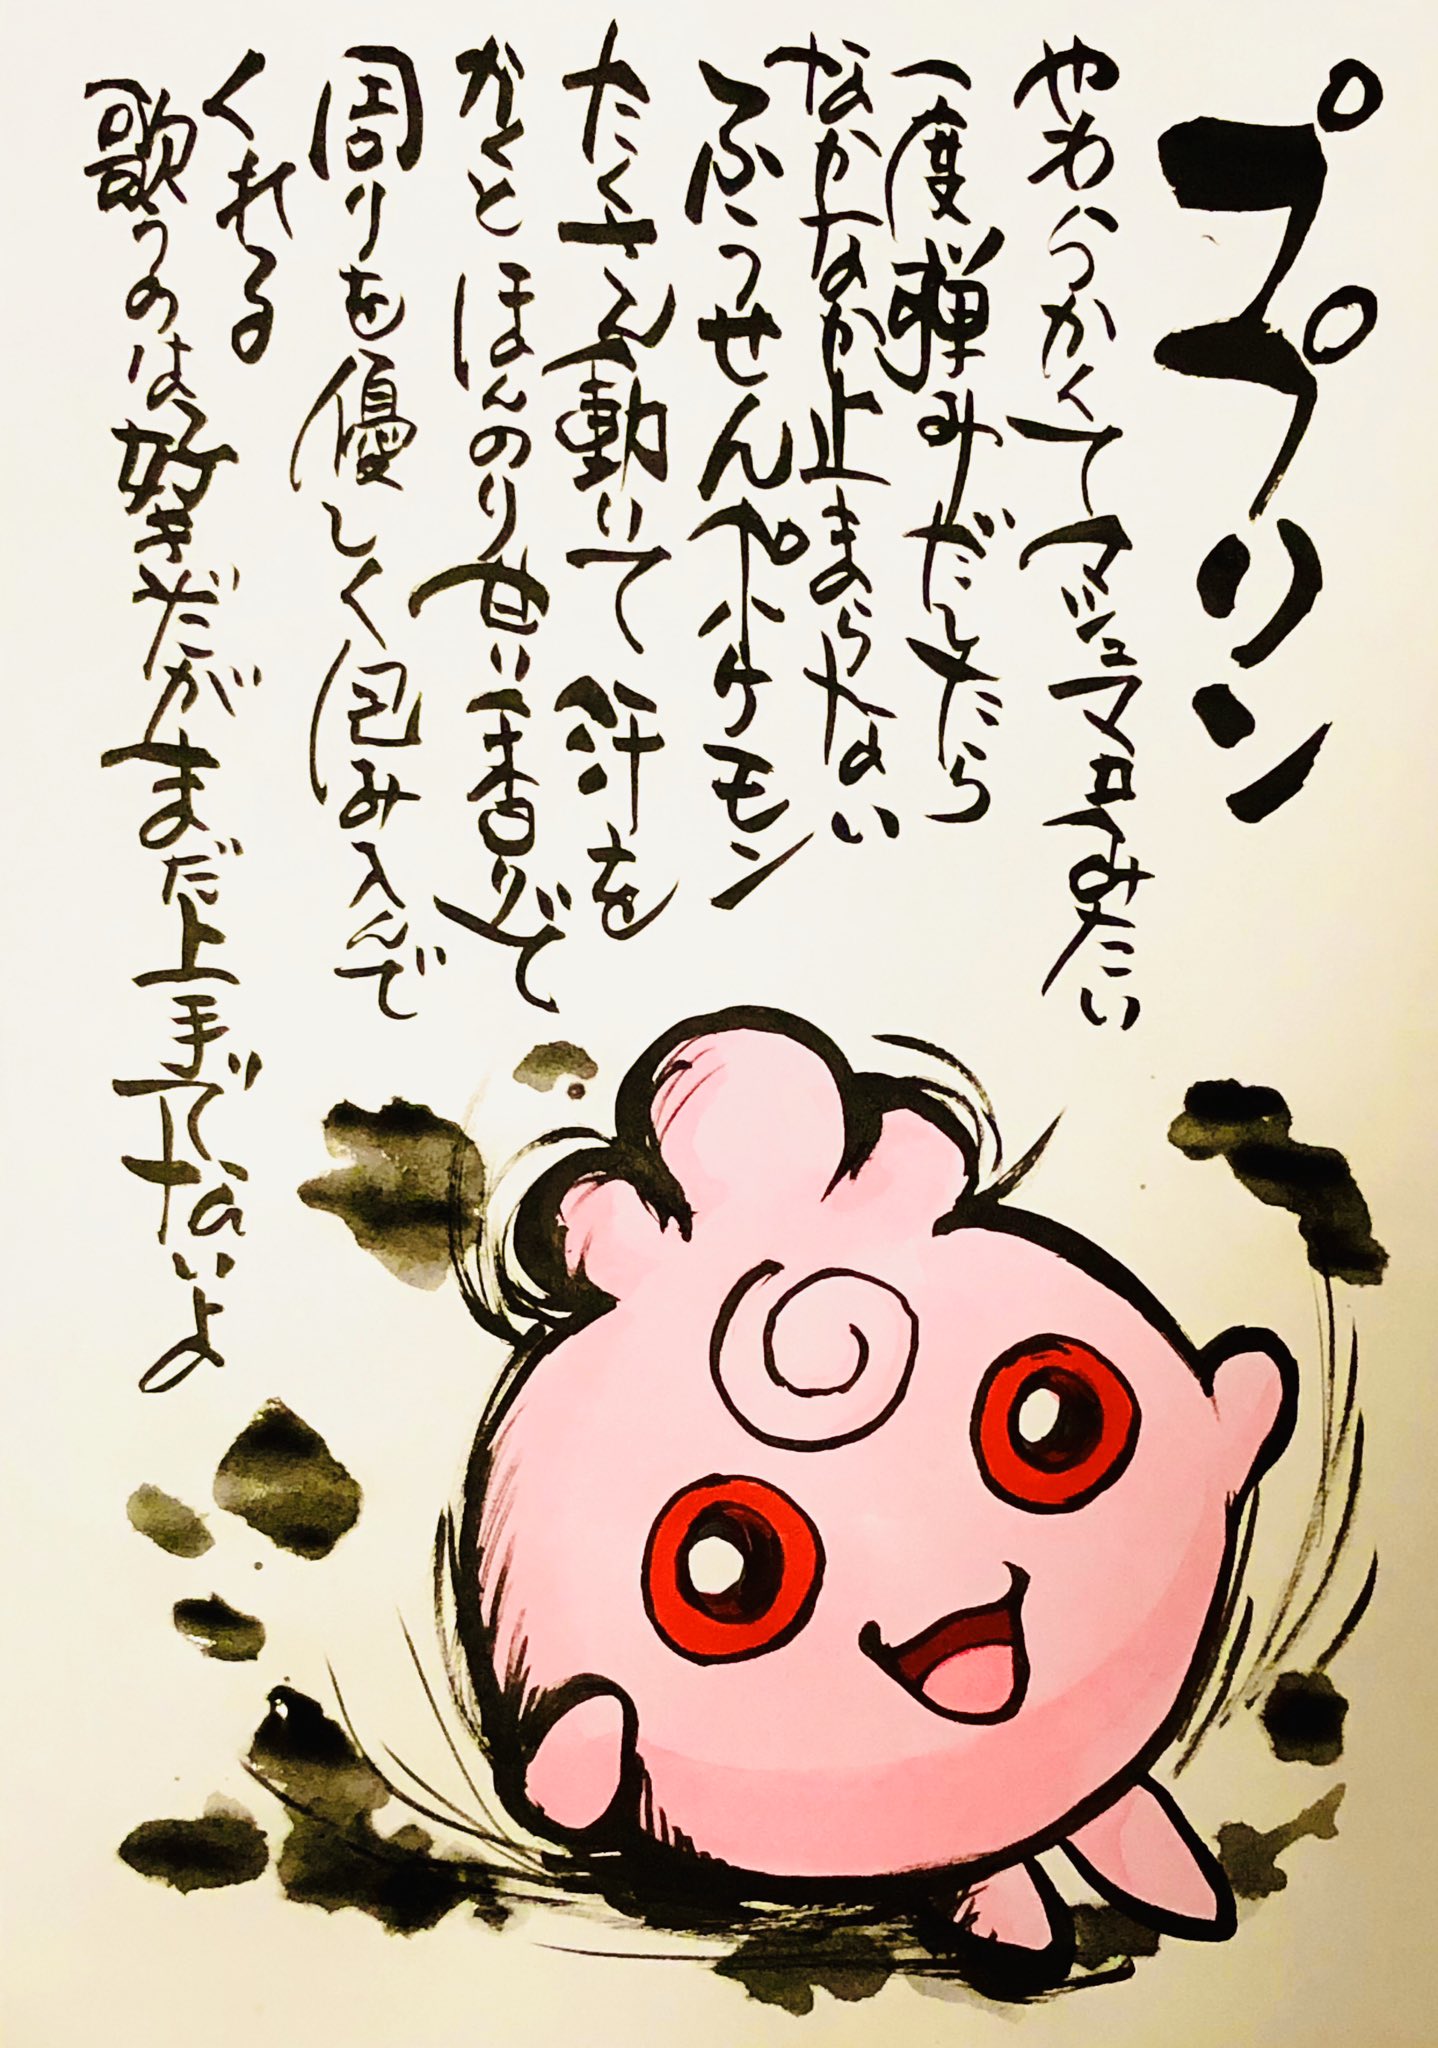 ププリン
やわらかくてマシュマロみたい
一度弾みだしたら
なかなか止まらない
ふうせんポケモン
たくさん動いて汗を
かくとほんのり甘い香りで
周りを優しく包み込んで
くれる
歌うのは好きだがまだ上手でないよ